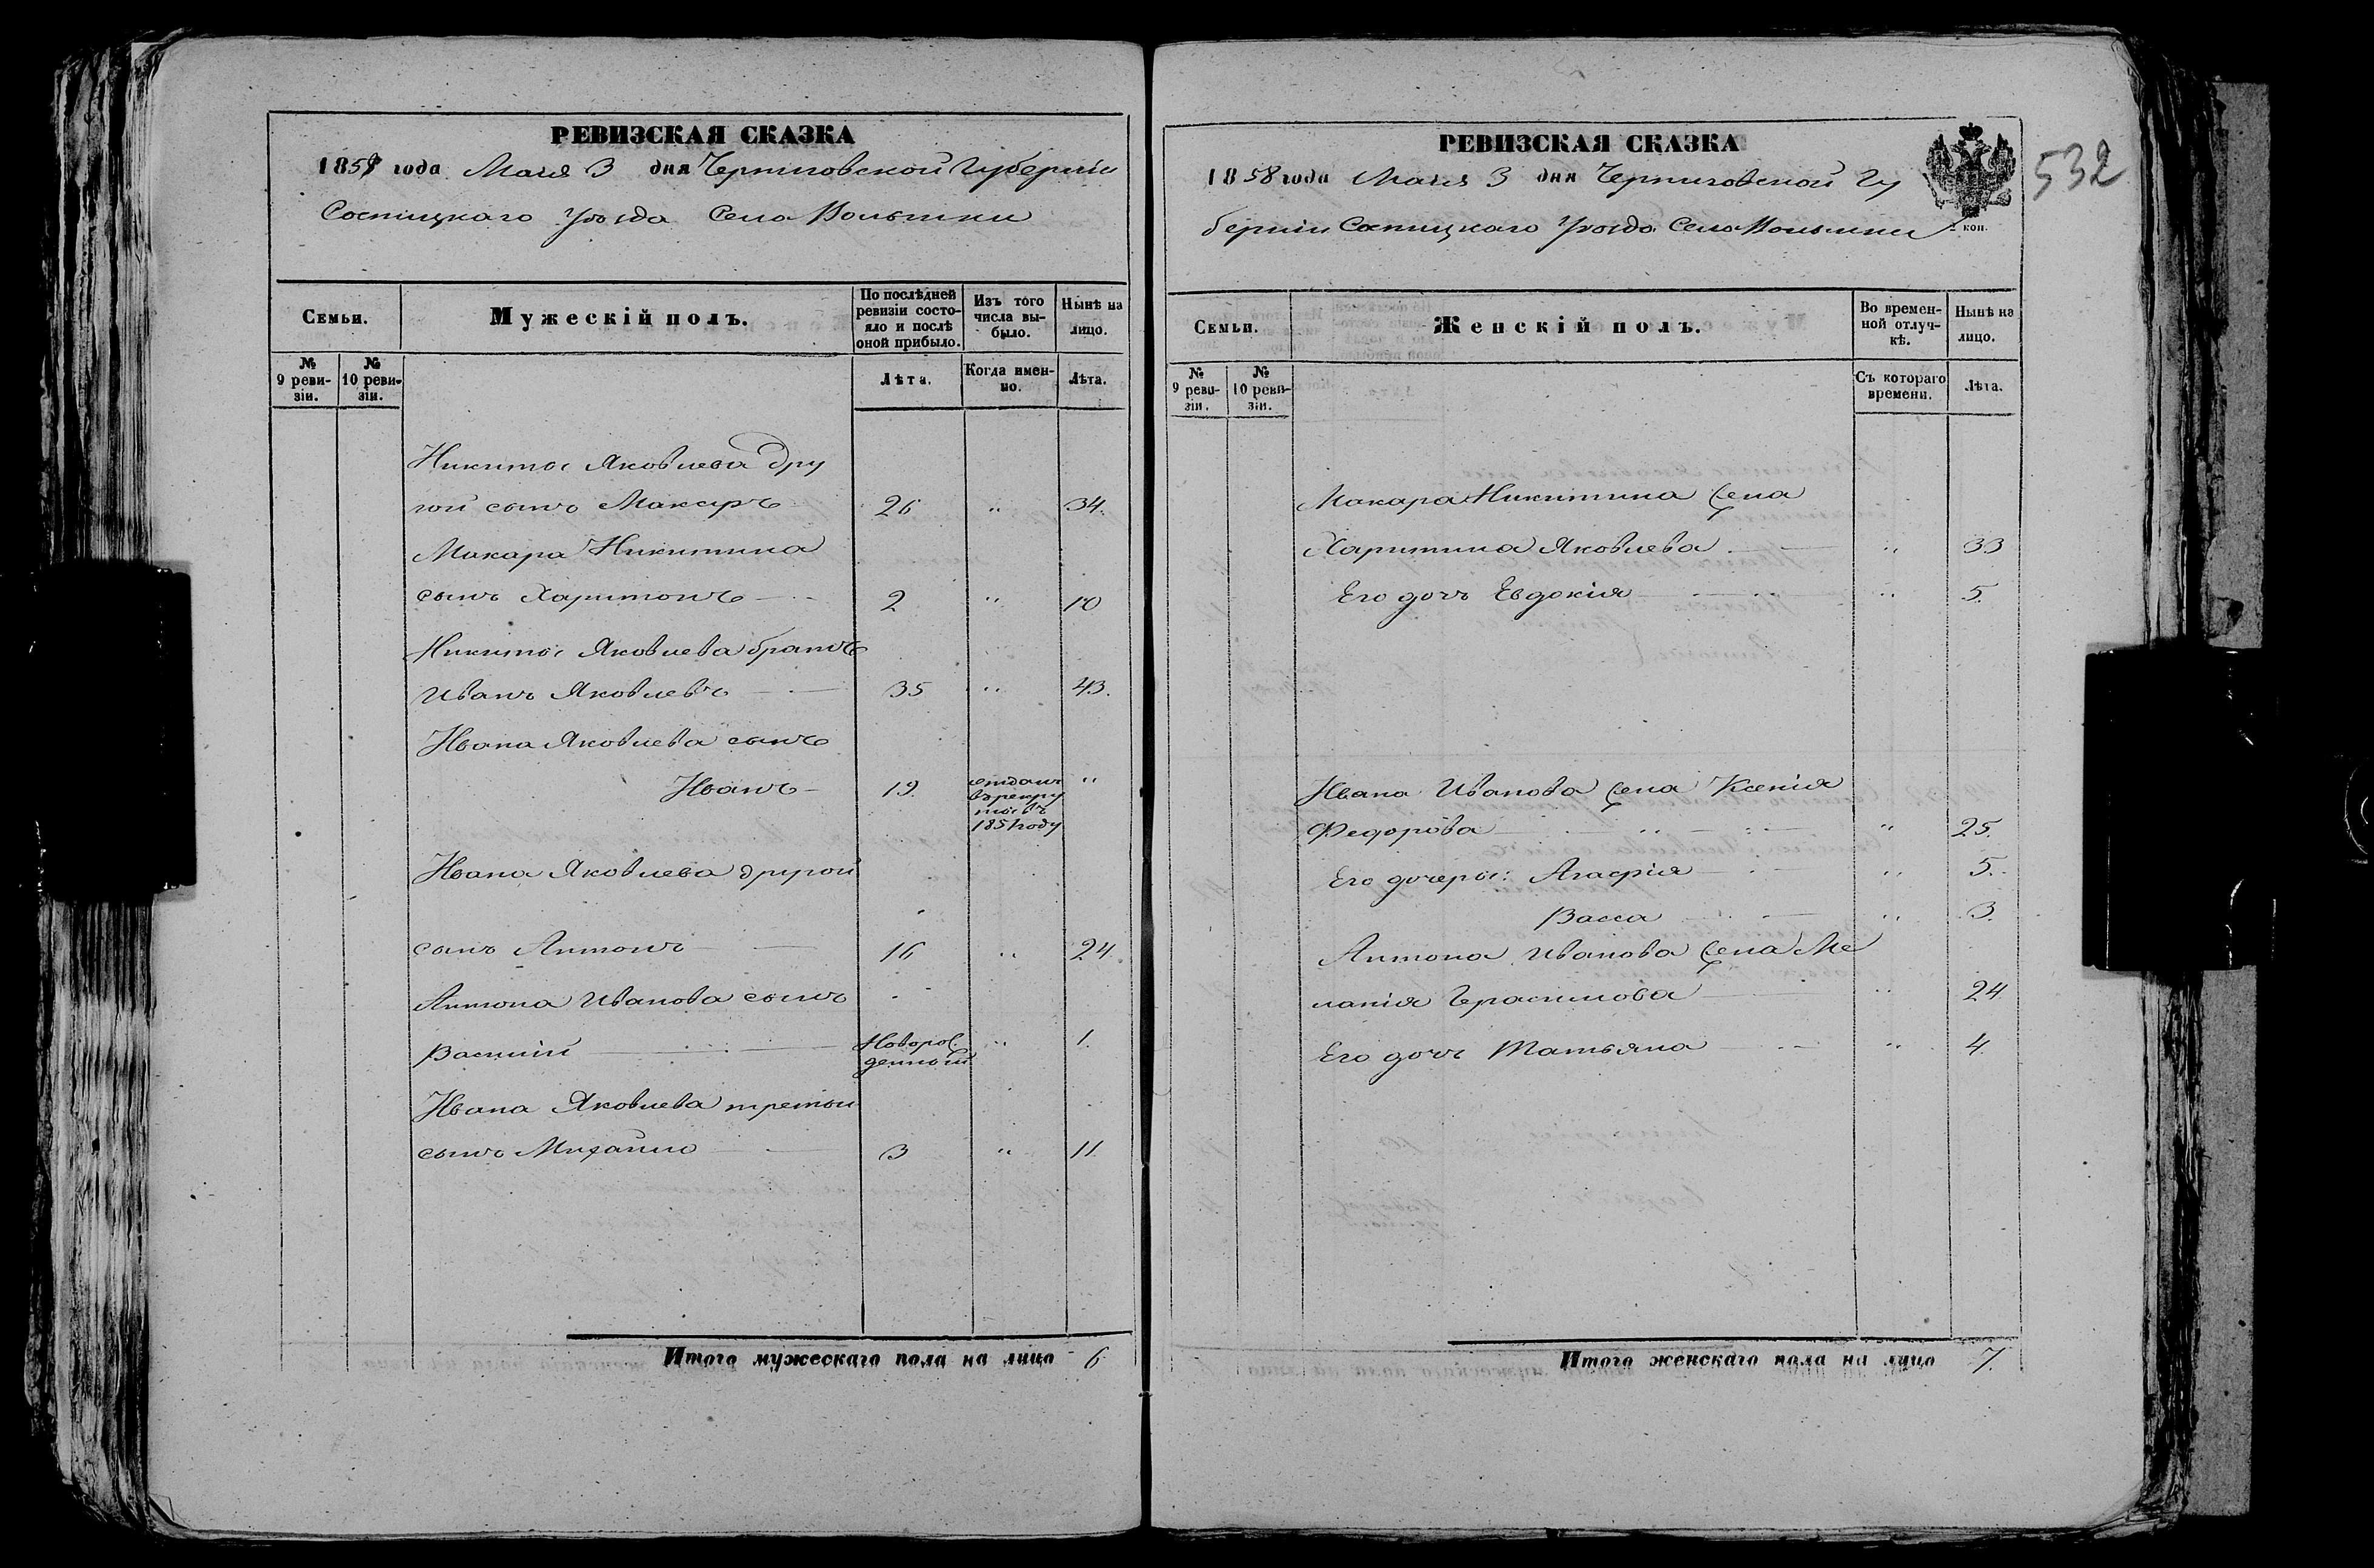 РЕВИЗСКАЯ СКАЗКА
1858 года Мая 3 дня Черниговской Губерніи
Сосницкаго Уѣзда Села Волынки
Семьи.
Мужескій полъ.
По послѣдней ревизіи состояло и послѣ оной прибыло.
Изъ того числа выбыло.
Нынѣ на лицо.
№ 9 ревизіи.
№ 10 ревизіи.
Лѣта.
Когда именно.
Лѣта.
Никиты Яковлева дру
гой сынъ Макаръ 26 " 34.
Макара Никитина
сынъ Харитонъ 2 " 10
Никиты Яковлева братъ
Иванъ Яковлевъ 35 " 43.
Ивана Яковлева сынъ
Иванъ 19. отданъ въ рекру ты въ 1851 году "
Ивана Яковлева другой
сынъ Антонъ 16 " 24.
Антона Иванова сынъ
Василій Новорож денный " 1.
Ивана Яковлева третый
сынъ Михайло 3 " 11.
Итого мужескаго пола на лицо 6
РЕВИЗСКАЯ СКАЗКА
532
1858 года Мая 3 дня Черниговской Гу
берніи Сосницкаго Уѣзда Села Волынки
коп.
Семьи.
Женскій полъ.
Во временной отлучкѣ.
Нынѣ на лицо.
№ 9 ревизіи.
№ 10 ревизіи.
Съ котораго времени.
Лѣта.
Макара Никитина жена
Харитина Яковлева " 33
Его дочь Евдокія " 5.
Ивана Иванова жена Ксенія
Федорова " 25.
Его дочеры: Агафія " 5.
Васса " 3.
Антона Иванова жена Ме
ланія Герасимова " 24
Его дочь Татьяна " 4.
Итого женскаго пола на лицо 7.